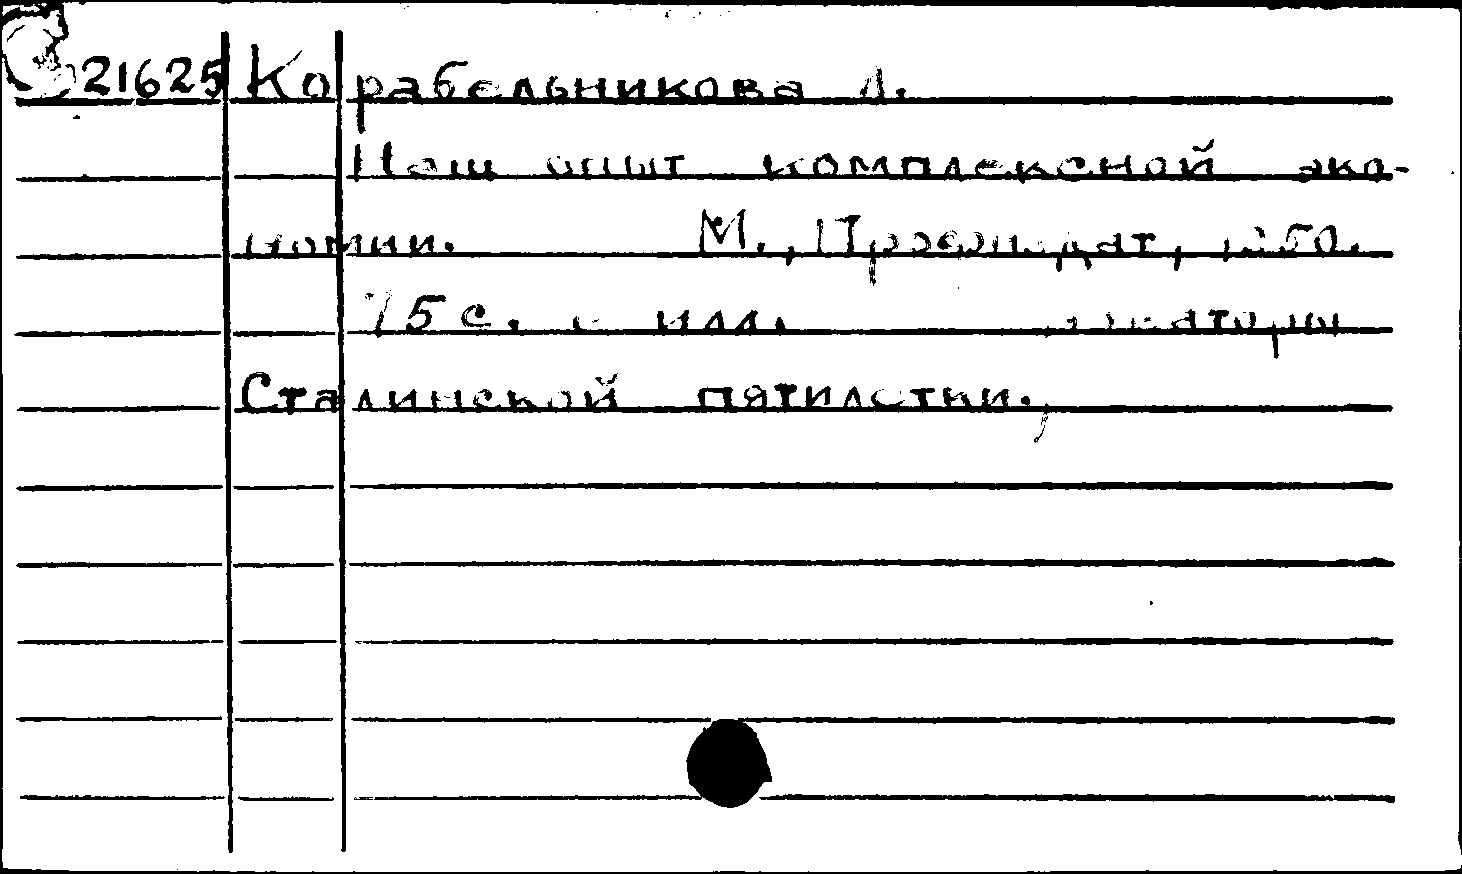 21625 Корабельникова Л.
Наш опыт комплексной эко-
номии. М., Профиздат, 1950.
75 с. с илл. новаторы
Сталинской пятилетки.